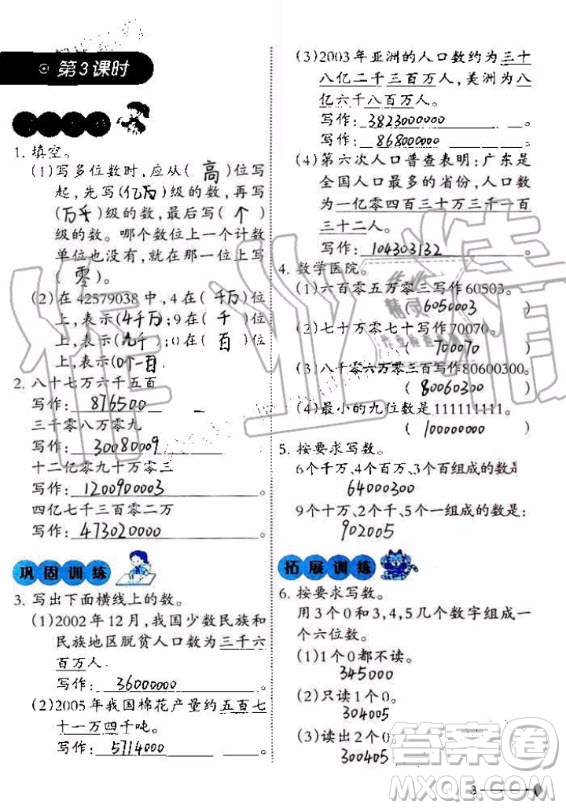 第3课时
1. 填空。
(1)写多位数时，应从(高)位写
起，先写(亿万)级的数，再写
(万千)级的数，最后写(个)
级的数。哪个数位上一个计数
单位也没有，就在那一位上写
(零)。
(2)在42579038中，4在(千万)位
上，表示(4千万)；9在(千)位
上，表示(9千)；0在(百)位
上，表示(0个一百)。
2. 八十七万六千五百
写作：876500。
三千零八万零九
写作：30080009。
十二亿零九十万零三
写作：1200900003。
四亿七千三百零二万
写作：473020000。
巩固训练
3. 写出下面横线上的数。
(1)2002年12月，我国少数民族和
民族地区脱贫人口数为三千六
百万人。
写作：36000000。
(2)2005年我国棉花产量约五百七
十一万四千吨。
写作：5714000。
(3)2003年亚洲的人口数约为三十
八亿二千三百万人，美洲为八
亿六千八百万人。
写作：3823000000。
写作：868000000。
(4)第六次人口普查表明：广东是
全国人口最多的省份，人口数
为一亿零四百三十万三千一百
三十二人。
写作：104303132。
4. 数学医院。
(1)六百零五万零三写作60503。
(6050003)
(2)七十万零七十写作70070。
(700070)
(3)八千零六万零三百写作80600300。
(80060300)
(4)最小的九位数是111111111。
(100000000)
5. 按要求写数。
6个千万、4个百万、3个百组成的数是
64000300。
9个十万、2个千、5个一组成的数是：
902005。
拓展训练
6. 按要求写数。
用3个0和3,4,5几个数字组成一
个六位数。
(1)1个0都不读。
345000
(2)只读1个0。
304005
(3)读出2个0。
300405
3
作业精灵
答案圈
MXQE.COM